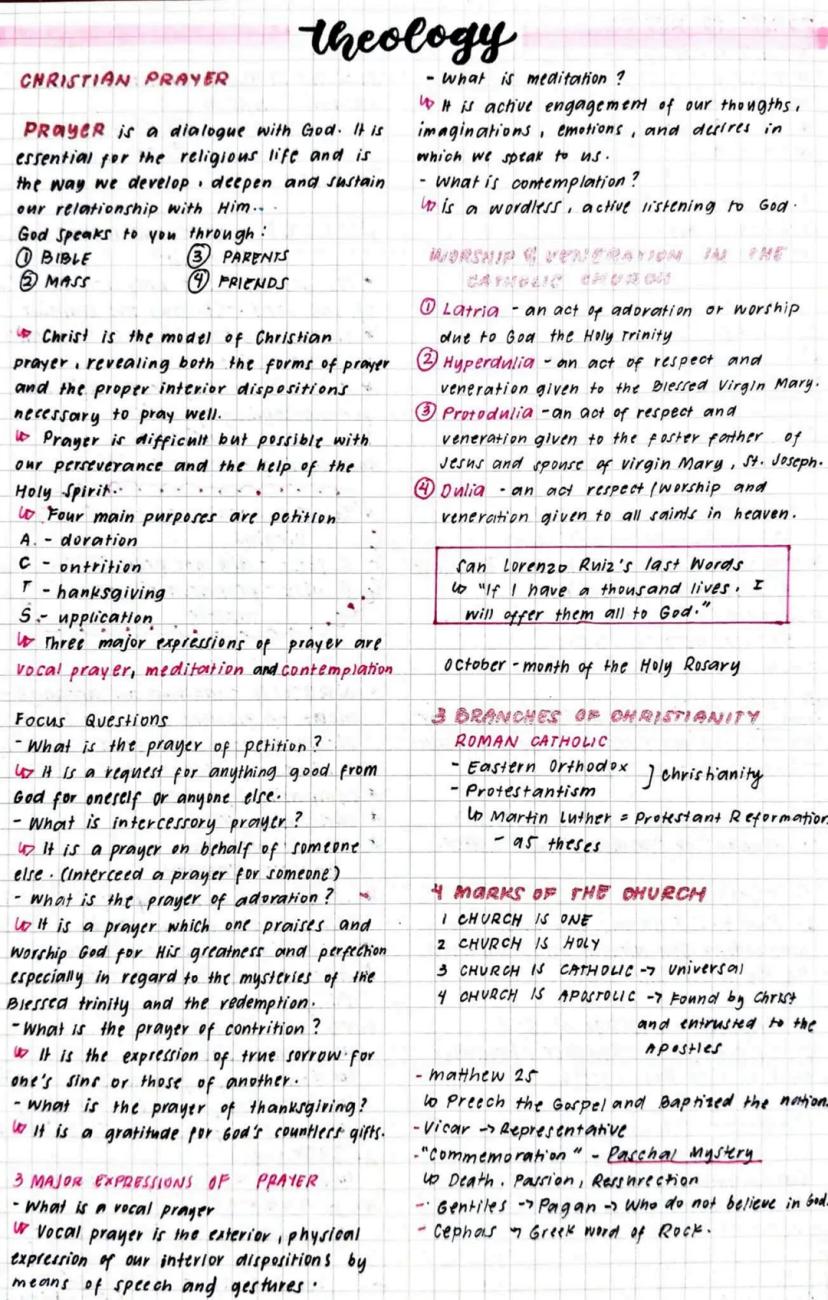 theology
CHRISTIAN PRAYER
PRAYER is a dialogue with God. It is
essential for the religious life and is
the way we develop, deepen and sustain
our relationship with Him..
God speaks to you through:
① BIBLE ③ PARENTS
② MASS ④ FRIENDS
↳ Christ is the model of Christian
prayer, revealing both the forms of prayer
and the proper interior dispositions
necessary to pray well.
↳ Prayer is difficult but possible with
our perseverance and the help of the
Holy Spirit.
↳ Four main purposes are petition
A. - doration
C - ontrition
T - hanksgiving
S.- upplication
↳ Three major expressions of prayer are
vocal prayer, meditation and contemplation
Focus Questions
- What is the prayer of petition?
↳ It is a request for anything good from
God for oneself or anyone else.
- What is intercessory prayer?
↳ It is a prayer on behalf of someone
else. (Interceed a prayer for someone)
- What is the prayer of adoration?
↳ It is a prayer which one praises and
worship God for His greatness and perfection
especially in regard to the mysteries of the
Blessed trinity and the redemption.
- What is the prayer of contrition?
↳ It is the expression of true sorrow for
one's sins or those of another.
- What is the prayer of thanksgiving?
↳ It is a gratitude for God's countless gifts.
3 MAJOR EXPRESSIONS OF PRAYER
- What is a vocal prayer
↳ Vocal prayer is the exterior, physical
expression of our interior dispositions by
means of speech and gestures.
- What is meditation?
↳ It is active engagement of our thougths,
imaginations, emotions, and desires in
which we speak to us.
- What is contemplation?
↳ is a wordless, active listening to God.
WORSHIP & VENERATION IN THE
CATHOLIC CHURCH
① Latria - an act of adoration or worship
due to God the Holy Trinity
② Hyperdulia - an act of respect and
veneration given to the Blessed Virgin Mary.
③ Protodulia - an act of respect and
veneration given to the foster father of
Jesus and spouse of virgin Mary, St. Joseph.
④ Dulia - an act respect/worship and
veneration given to all saints in heaven.
San Lorenzo Ruiz's last Words
↳ "If I have a thousand lives, I
will offer them all to God."
October - month of the Holy Rosary
3 BRANCHES OF CHRISTIANITY
ROMAN CATHOLIC
- Eastern Orthodox ] christianity
- Protestantism
↳ Martin Luther = Protestant Reformation
- 95 theses
4 MARKS OF THE CHURCH
1 CHURCH IS ONE
2 CHURCH IS HOLY
3 CHURCH IS CATHOLIC → Universal
4 CHURCH IS APOSTOLIC → Found by Christ
and entrusted to the
Apostles
- Matthew 25
↳ Preech the Gospel and Baptized the nation
- Vicar → Representative
- "Commemoration" - Paschal Mystery
↳ Death, Passion, Ressurection
- Gentiles → Pagan → Who do not believe in God.
- Cephas → Greek word of Rock.